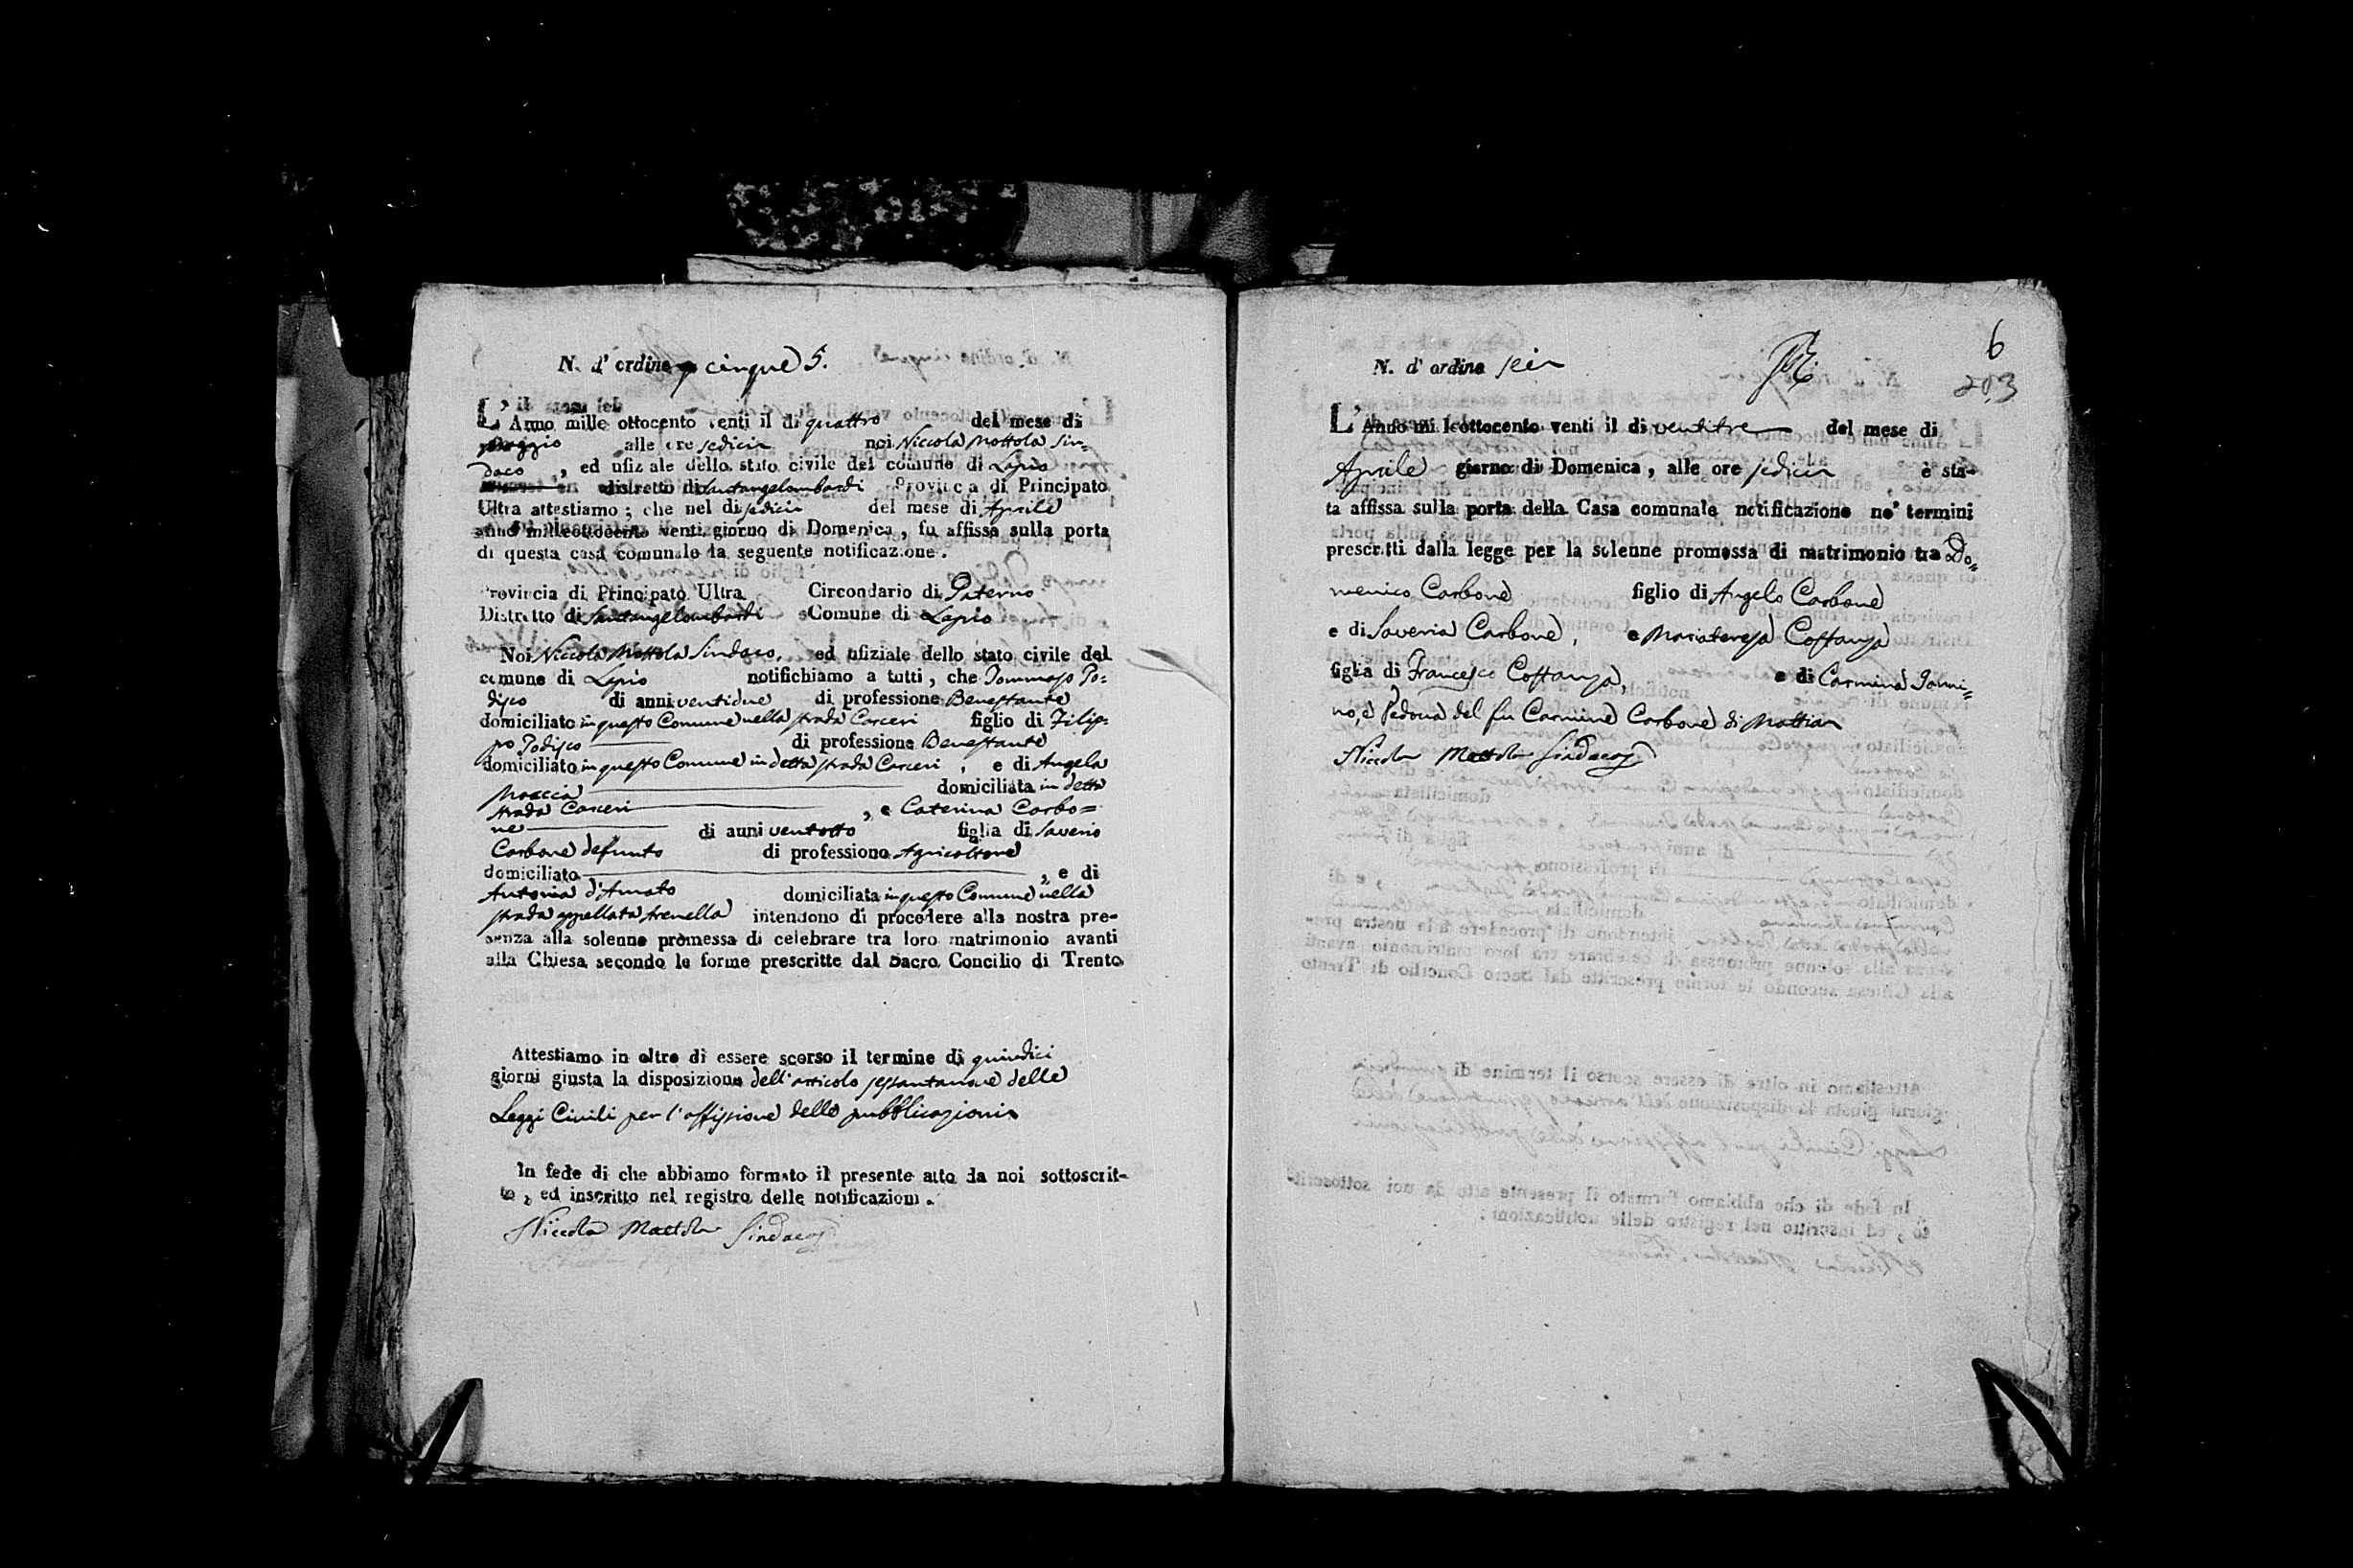 N. d' ordine cinque 5.
L' Anno mille ottocento venti il di quattro del mese di
Maggio alle ore sedici noi Niccola Mottola Sin-
daco , ed ufiziale dello stato civile del comune di Lapio
distretto di Santangelombardi Provincia di Principato
Ultra attestiamo ; che nel di sedici del mese di Aprile
anno milleottocento venti giorno di Domenica , fu affissa sulla porta
di questa casa comunale la seguente notificazione .
Provincia di Principato Ultra Circondario di Paterno
Distretto di Santangelombardi Comune di Lapio
Noi Niccola Mottola Sindaco, ed ufiziale dello stato civile del
comune di Lapio notifichiamo a tutti , che Tommaso To=
disco di anni ventidue di professione Benestante
domiciliato in questo Comune nella strada Carceri figlio di Filip=
po Todisco di professione Benestante
domiciliato in questo Comune in detta strada Carceri , e di Angela
domiciliata in detta
strada Carceri , e Caterina Carbo=
ne di anni ventotto figlia di Saverio
Carbone defunto di professione Agricoltore
domiciliato , e di
Antonia d'Amato domiciliata in questo Comune nella
strada appellata intendono di procedere alla nostra pre-
senza alla solenne promessa di celebrare tra loro matrimonio avanti
alla Chiesa secondo le forme prescritte dal Sacro Concilio di Trento
Attestiamo in oltre di essere scorso il termine di quindici
giorni giusta la disposizione dell'articolo sessantanove delle
Leggi Civili per l'affissione delle pubblicazioni
In fede di che abbiamo formato il presente atto da noi sottoscrit-
to , ed inscritto nel registro delle notificazioni .
Niccola Mottola Sindaco
6
N. d' ordine sei
203
L' Anno mille ottocento venti il di ventitre del mese di
Aprile giorno di Domenica , alle ore sedici è sta-
ta affissa sulla porta della Casa comunale notificazione ne' termini
prescritti dalla legge per la solenne promessa di matrimonio tra Do=
menico Carbone figlio di Angelo Carbone
e di Saveria Carbone , e Mariateresa Costanza
figlia di Francesco Costanza, e di Carmina Ianni=
no, e Vedova del fu Carmine Carbone di Mattia
Niccola Mottola Sindaco